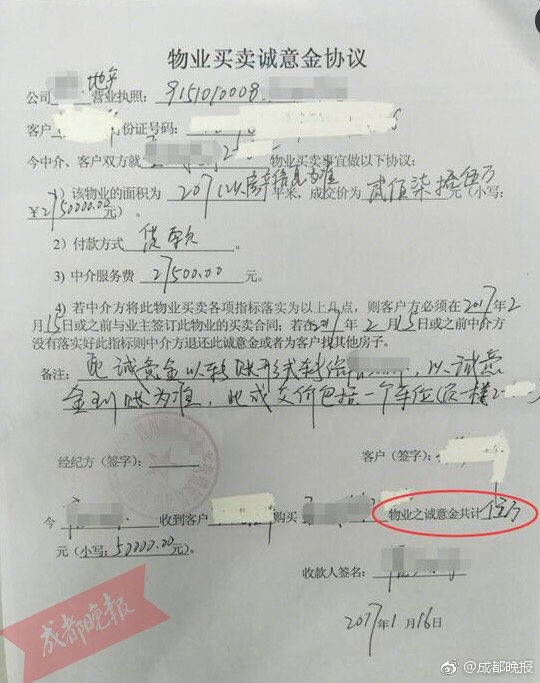 物业买卖诚意金协议
公司 地产 营业执照：9151010008
客户 份证号码：
今中介、客户双方就 物业买卖事宜做以下协议：
1）该物业的面积为 207（以房产信息为准 平米，成交价为 贰佰柒拾伍万 元（小写：
¥2750000.00 元）。
2）付款方式 贷款 。
3）中介服务费 27500.00 元。
4）若中介方将此物业买卖各项指标落实为以上几点，则客户方必须在2017年2
月15日或之前与业主签订此物业的买卖合同；若在2017年2月15日或之前中介方
没有落实好此指标则中介方退还此诚意金或者为客户找其他房子。
备注： 此诚意金以转账形式转给 ，以诚意
金到账为准，此成交价包括一个车位（负一楼2-
经纪方（签字）： 客户（签字）：
今 收到客户 购买 物业之诚意金共计 伍万
元（小写：50000.00 元）
收款人签名：
2017年1月16日
成都晚报
@成都晚报